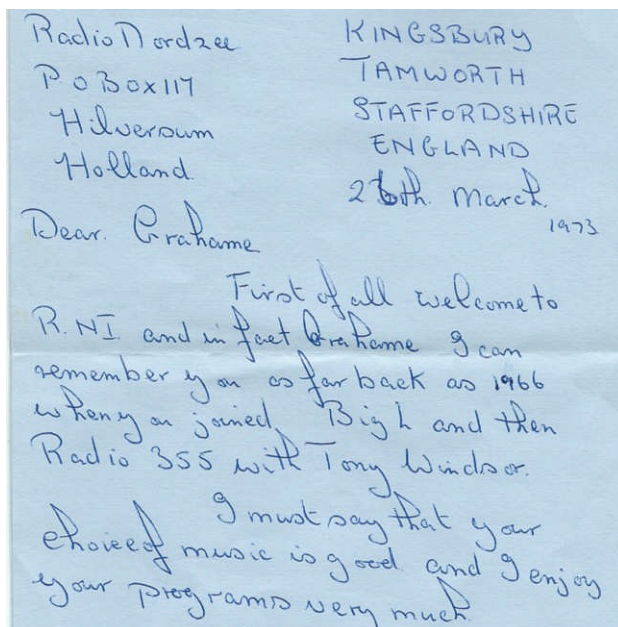 Radio Nordzee
P.O Box 117
Hilversum
Holland.
KINGSBURY
TAMWORTH
STAFFORDSHIRE
ENGLAND
26th. March.
1973
Dear. Grahame
First of all welcome to
R.NI. and in fact Grahame I can
remember you as far back as 1966
when you joined, Big L and then
Radio 355 with Tony Windsor.
I must say that your
choice of music is good and I enjoy
your programs very much.